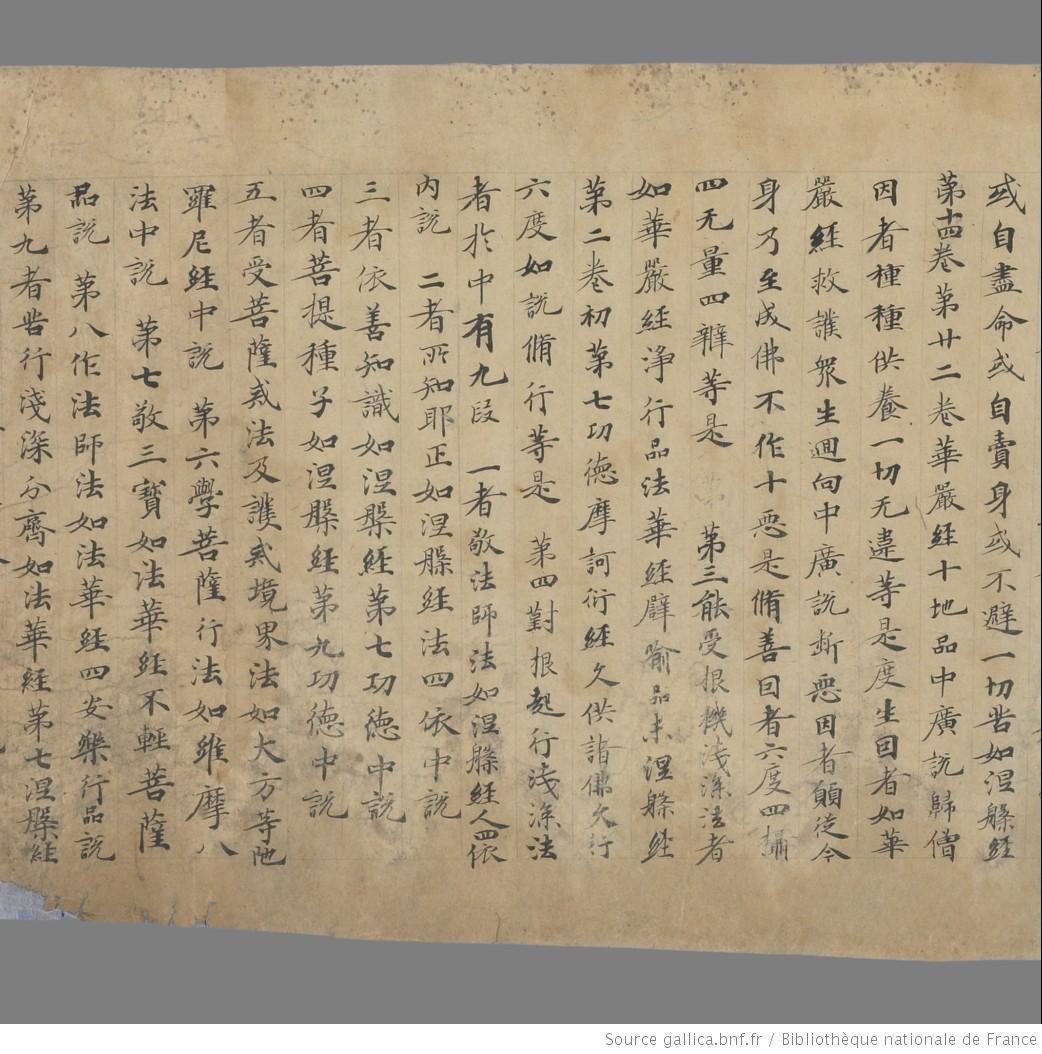 或自盡命或自賣身或不避一切苦如涅槃経
第十四卷第廿二卷華嚴経十地品中廣説歸僧
因者種種供養一切无違等是度生因者如華
嚴経救護衆生迴向中廣説断惡因者願従今
身乃至成佛不作十惡是脩善因者六度四攝
四无量四辯等是 第 第三能受根機淺深法者
如華嚴経浄行品法華経譬喻品末涅槃経
第二卷初第七功德摩訶衍経久供諸佛久行
六度如説脩行等是 第四對根起行淺深法
者於中有九段 一者敬法師法如涅槃経人四依
内説 二者所知耶正如涅槃経法四依中説
三者依善知識如涅槃経第七功德中説
四者菩提種子如涅槃経第九功德中説
五者受菩薩戒法及護戒境界法如大方等陁
羅尼経中説 第六學菩薩行法如維摩八
法中説 第七敬三寶如法華経不輕菩薩
品説 第八作法師法如法華経四安樂行品説
第九者苦行淺深分齊如法華経第七涅槃経
Source gallica.bnf.fr / Bibliothèque nationale de France